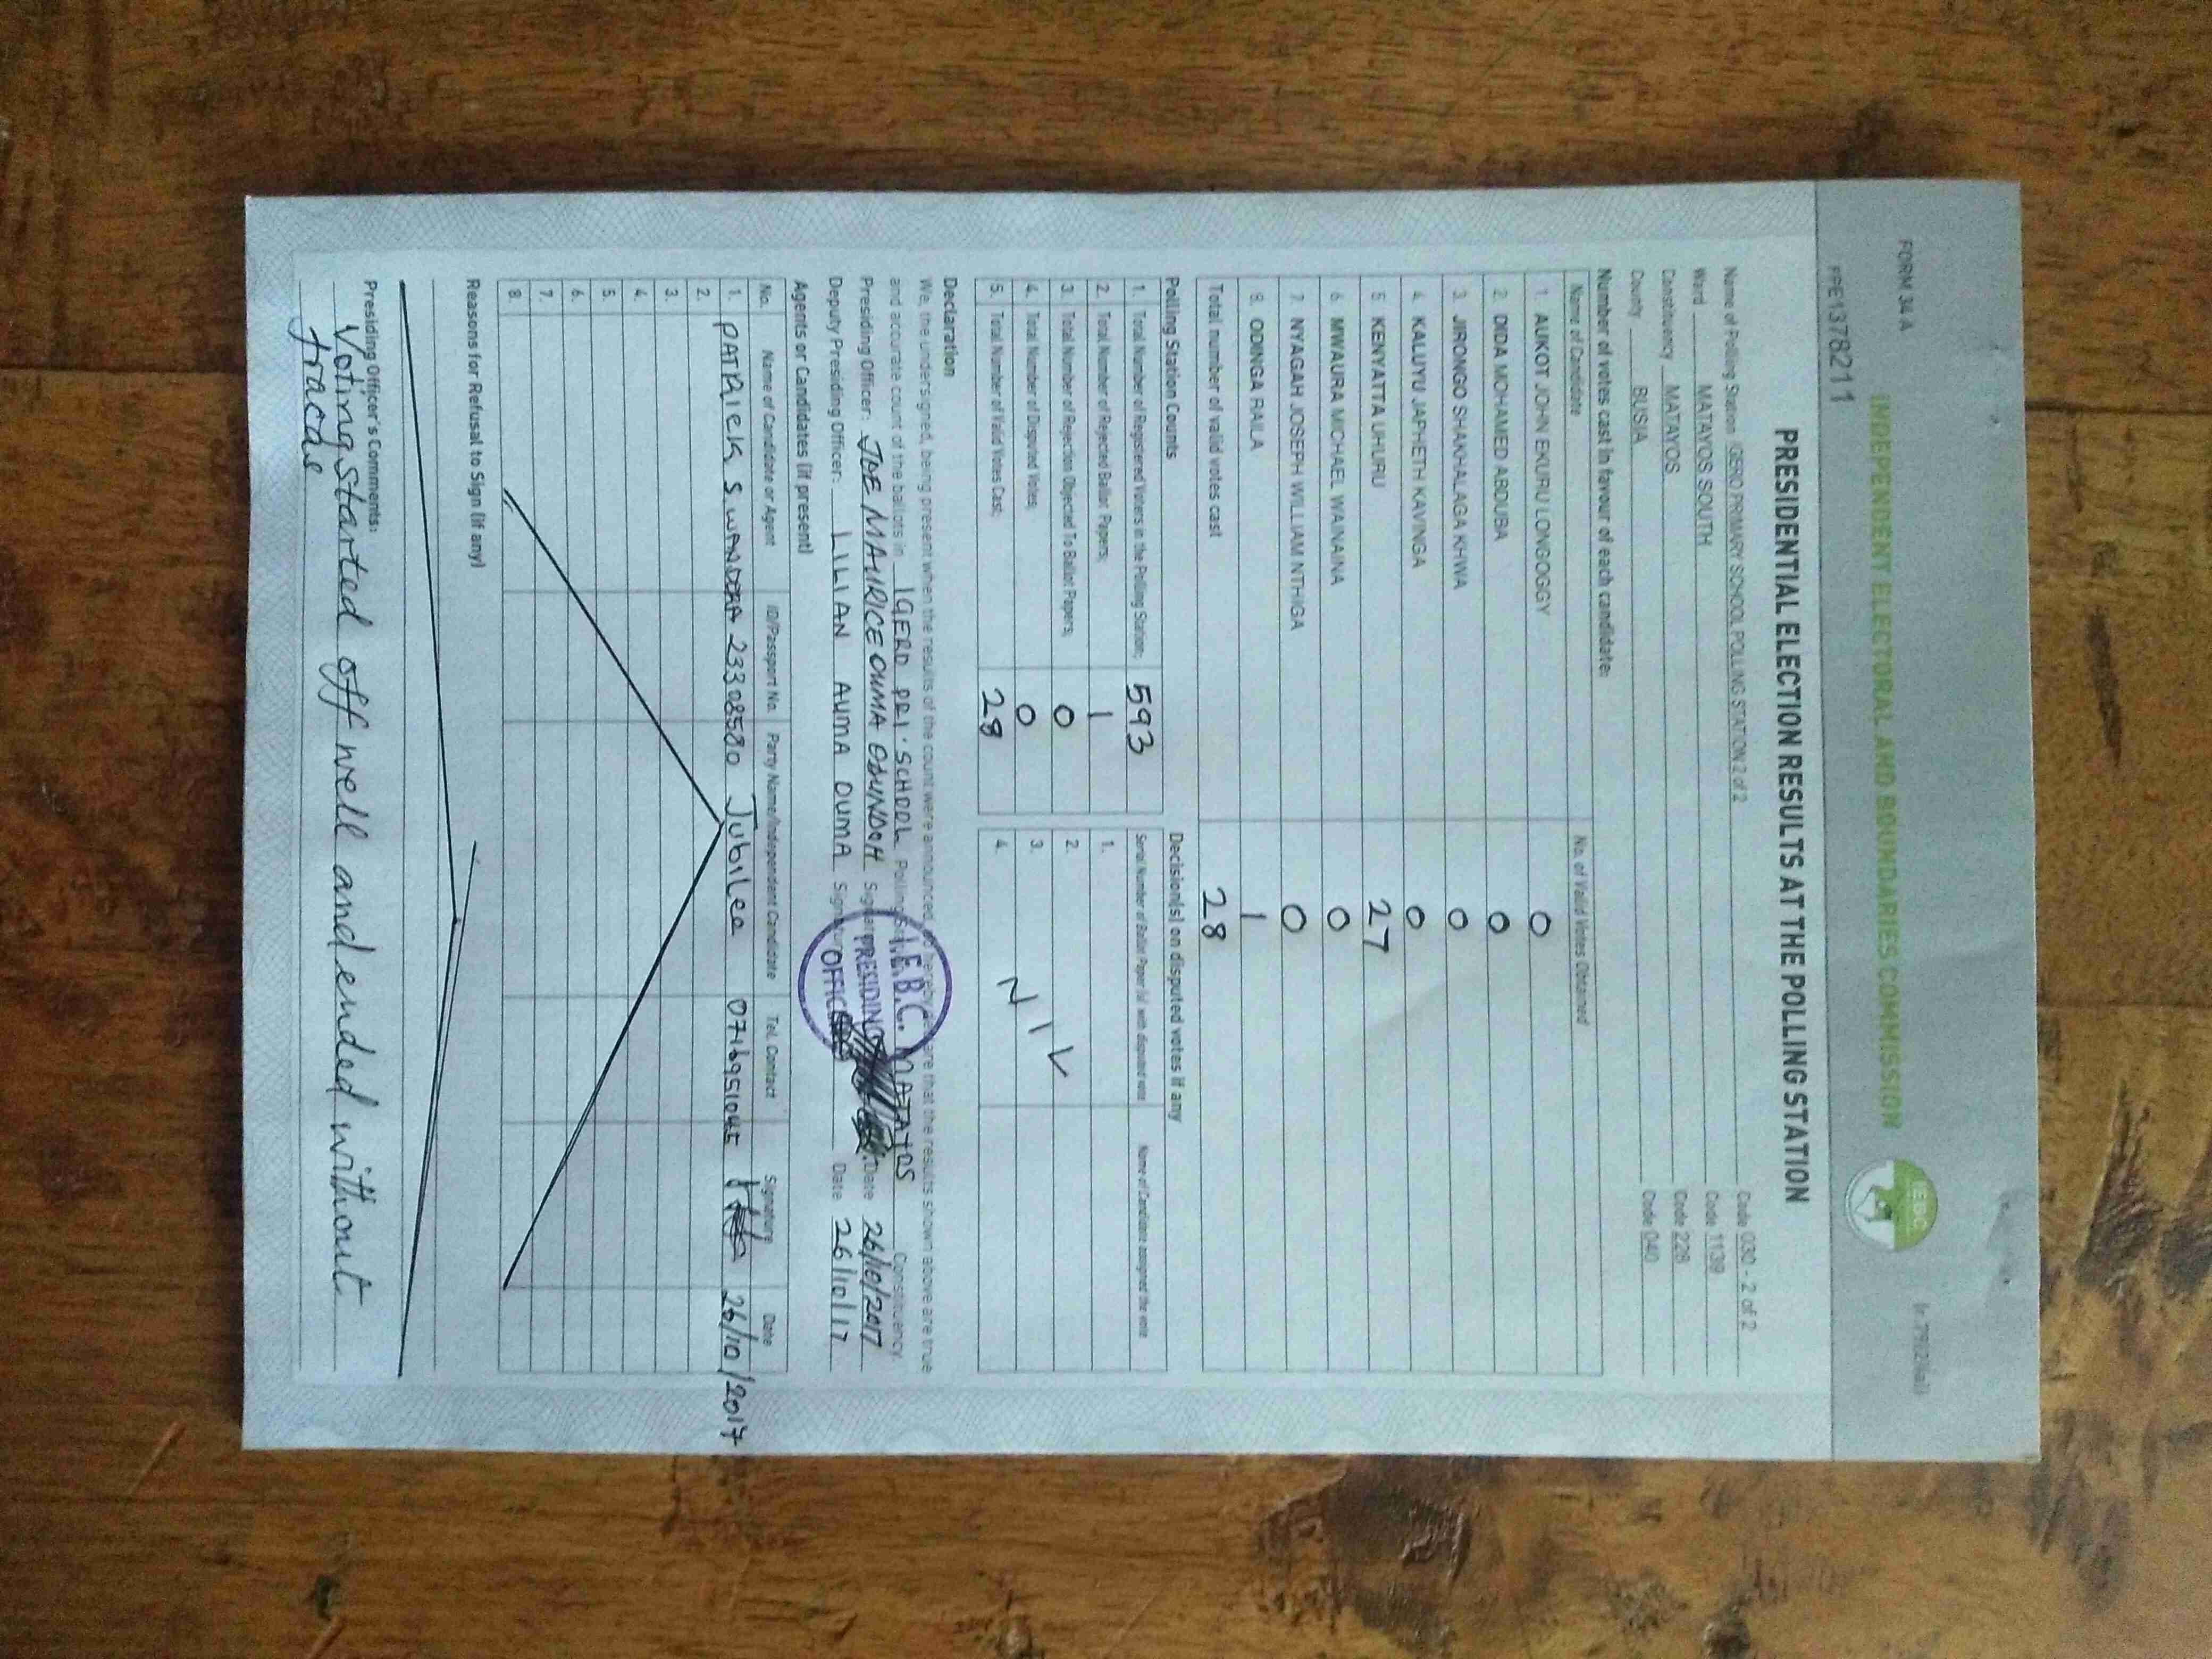 FORM 34 A
INDEPENDENT ELECTORAL AND BOUNDARIES COMMISSION
IEBC
PPE1378211
PRESIDENTIAL ELECTION RESULTS AT THE POLLING STATION
Name of Polling Station IGERO PRIMARY SCHOOL POLLING STATION 2 of 2 Code 030 - 2 of 2
Ward MATAYOS SOUTH Code 1139
Constituency MATAYOS Code 228
County BUSIA Code 040
Number of votes cast in favour of each candidate:
Name of Candidate No. of Valid Votes Obtained
1. AUKOT JOHN EKURU LONGOGGY 0
2. DIDA MOHAMED ABDUBA 0
3. JIRONGO SHAKHALAGA KHWA 0
4. KALUYU JAPHETH KAVINGA 0
5. KENYATTA UHURU 27
6. MWAURA MICHAEL WAINAINA 0
7. NYAGAH JOSEPH WILLIAM NTHIGA 0
8. ODINGA RAILA 1
Total number of valid votes cast 28
Polling Station Counts
1. Total Number of Registered Voters in the Polling Station; 593
2. Total Number of Rejected Ballot Papers; 1
3. Total Number of Rejection Objected To Ballot Papers; 0
4. Total Number of Disputed Votes; 0
5. Total Number of Valid Votes Cast; 28
Decision(s) on disputed votes if any
Serial Number of Ballot Paper (s) with disputed vote Name of Candidate assigned the vote
1.
2.
3.
4.
Declaration
We, the undersigned, being present when the results of the count were announced, do hereby declare that the results shown above are true
and accurate count of the ballots in IGERO PRI. SCHOOL Polling MATAYOS Constituency
Presiding Officer: JOE MAURICE OUMA Date 26/10/2017
Deputy Presiding Officer: LILIAN AUMA OUMA Date 26/10/17
I.E.B.C.
PRESIDING
OFFICER
Agents or Candidates (if present)
No. Name of Candidate or Agent ID/Passport No. Party Name/Independent Candidate Tel. Contact Signature Date
1. PATRICK S. WANDERA 23308580 Jubilee 0716951045 26/10/2017
2.
3.
4.
5.
6.
7.
8.
Reasons for Refusal to Sign (if any)
Presiding Officer's Comments:
Voting started off well and ended without
fracas